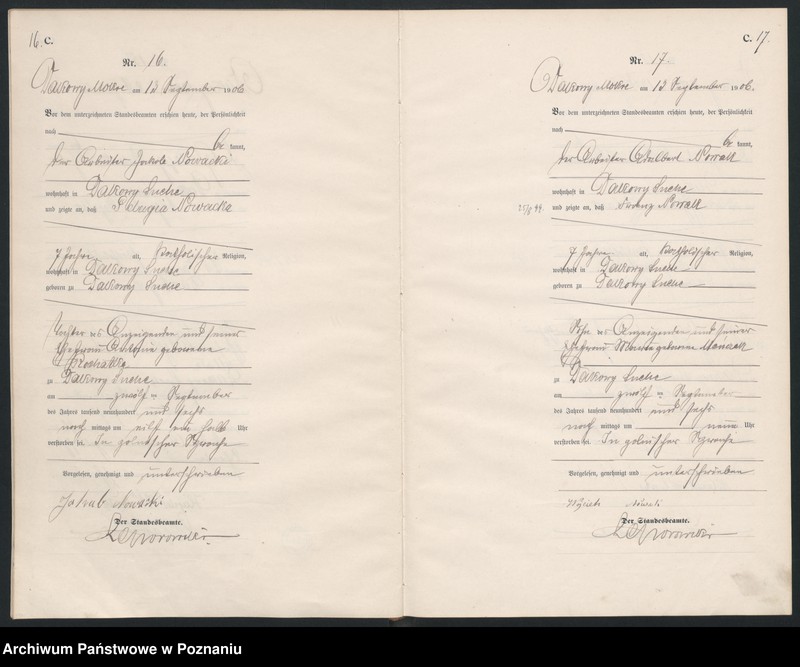 16. C.
Nr. 16.
Dalkowy Mokre am 13 September 1906
Vor dem unterzeichneten Standesbeamten erschien heute, der Persönlichkeit
nach
be kannt,
der Arbeiter Jakob Nowacki
wohnhaft in Dalkowy Suche
und zeigte an, daß Pelagia Nowacka
7 Jahre alt, katholischer Religion,
wohnhaft in Dalkowy Suche
geboren zu Dalkowy Suche
Tochter des Anzeigenden und seiner
Ehefrau Antonie geborene
zu Dalkowy Suche
am zwölf ten September
des Jahres tausend neunhundert und sechs
nach mittags um elf ein halb Uhr
verstorben sei. In polnischer Sprache
Vorgelesen, genehmigt und unterschrieben
Jakub Nowacki
Der Standesbeamte.
C. 17.
Nr. 17.
Dalkowy Mokre am 13 September 1906.
Vor dem unterzeichneten Standesbeamten erschien heute, der Persönlichkeit
nach
be kannt,
der Arbeiter Adalbert Nowak
wohnhaft in Dalkowy Suche
und zeigte an, daß Lorenz Nowak
7 Jahre alt, katholischer Religion,
wohnhaft in Dalkowy Suche
geboren zu Dalkowy Suche
Sohn des Anzeigenden und seiner
Ehefrau geborene
zu Dalkowy Suche
am zwölf ten September
des Jahres tausend neunhundert und sechs
nach mittags um neun Uhr
verstorben sei. In polnischer Sprache
Vorgelesen, genehmigt und unterschrieben
Der Standesbeamte.
Archiwum Państwowe w Poznaniu